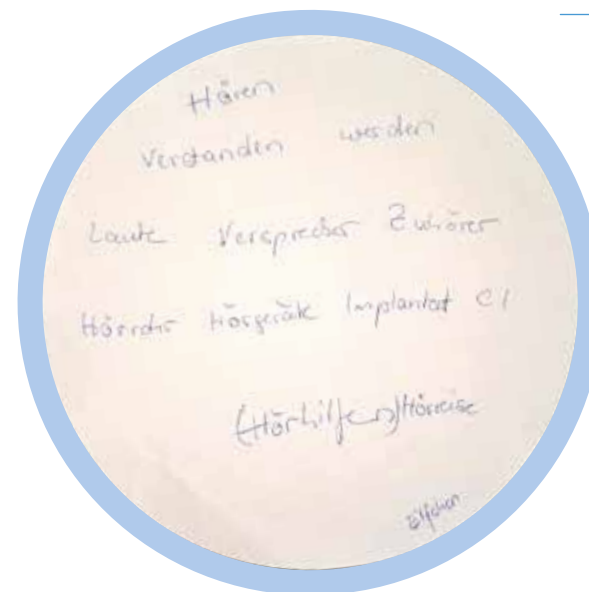 Hören
Verstanden werden
Laute Versprecher Zuhörer
Hörrohr Hörgerät Implantat CI
(Hörhilfen) Hörreise
Elfchen